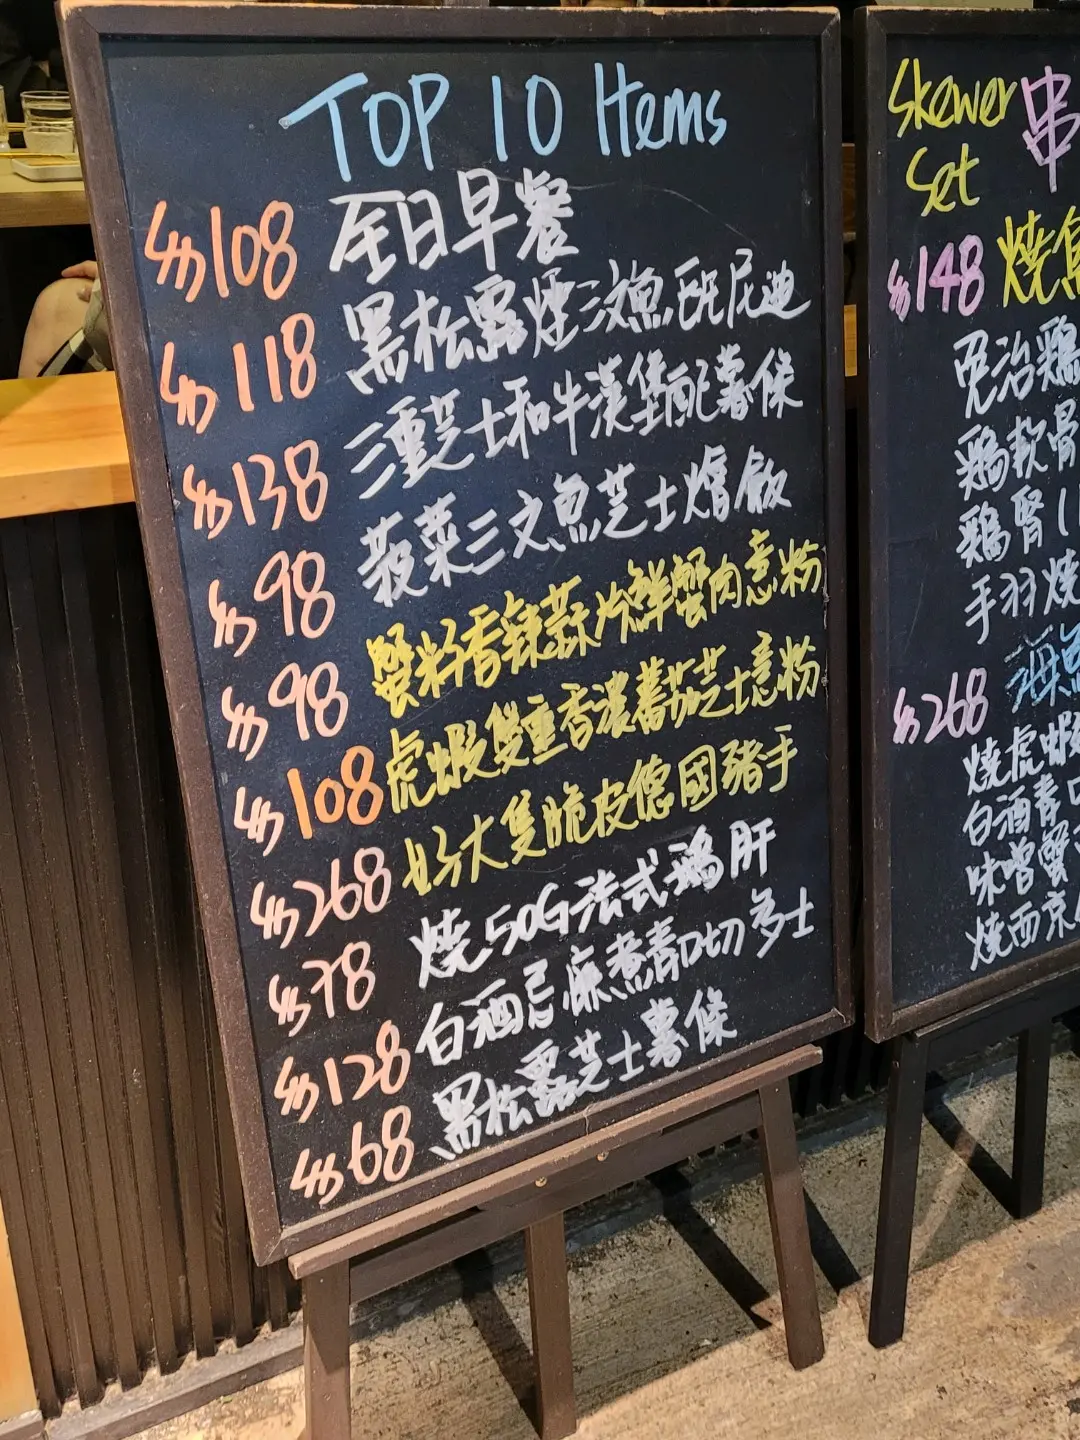 TOP 10 Items
$108 全日早餐
$118 黑松露煙三文魚班尼迪
$138 三重芝士和牛漢堡配薯條
$98 菠菜三文魚芝士燴飯
$98 蟹籽香辣蒜片鮮蟹肉意粉
$108 虎蝦雙重香濃蕃茄芝士意粉
$268 好大隻脆皮德國豬手
$78 燒50G法式鴻肝
$128 白酒忌廉煮青口切多士
$68 黑松露芝士薯條
Skewer 串
Set
$148 燒鳥
免治鶏
鶏軟骨
鶏腎
手羽燒
$268 海
燒虎蝦
白酒青口
味噌蟹
燒西京